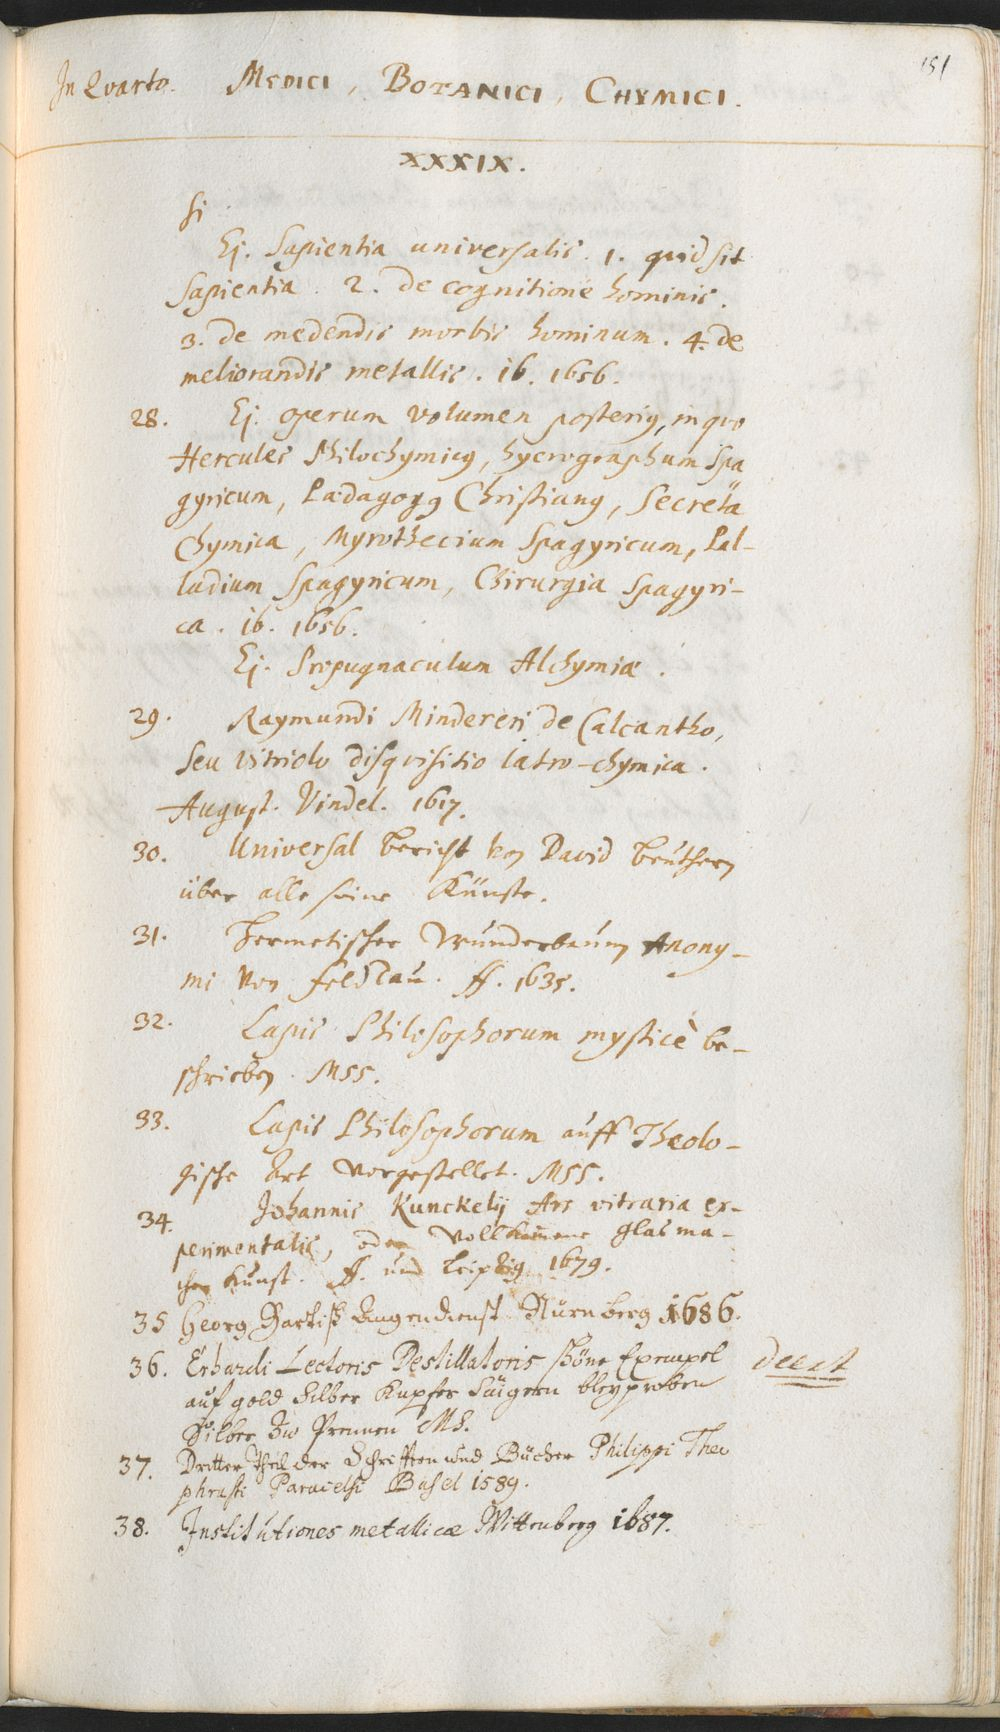 151
In Qvarto. MEDICI, BOTANICI, CHYMICI.
XXXIX.
si
Ej. Sapientia universalis. 1. quid sit
Sapientia. 2. De cognitione hominis.
3. De medendis morbis hominum. 4. de
meliorandis metallis. ib. 1656.
28. Ej. operum volumen posteriꝯ, in quo
Hercules Philochymicꝯ, hycrographum Spa
gyricum, Pædagogꝯ Christianꝯ, Secreta
Chymica, Myrothecium Spagyricum, Pal-
ladium Spagyricum, Chirurgia Spagyri-
ca. ib. 1656.
Ej. Propugnaculum Alchymiæ.
29. Raymundi Mindereri de Calcantho,
seu Vitriolo disqvisitio Iatro-chymica.
August. Vindel. 1617.
30. Universal bericht von David beuthern
über alle seine Künste.
31. Hermetischer Wunderbaum Anony-
mi von feldtau. ff. 1635.
32. Lapis Philosophorum mysticè be-
schrieben. MSS.
33. Lapis Philosophorum auff Theolo-
gische Art vorgestellet. MSS.
34. Johannis Kunckelij Ars vitraria ex-
perimentalis, oder Vollkom̄ene Glasma-
cher Kunst. ff. und Leipzig 1679.
35 Georg Bartisch Augendienst Nürnberg 1686.
36. Erhardi Lectoris Destillatoris schöne Exempel deest
auf gold Silber Kupfer Saigern bleyproben
Silber Zu Prennen MS.
37. Dritter Theil der Schrifften und Bücher Philippi Theo
phrasti Paracelsi Basel 1589.
38. Institutiones metallicæ Wittenberg 1687.